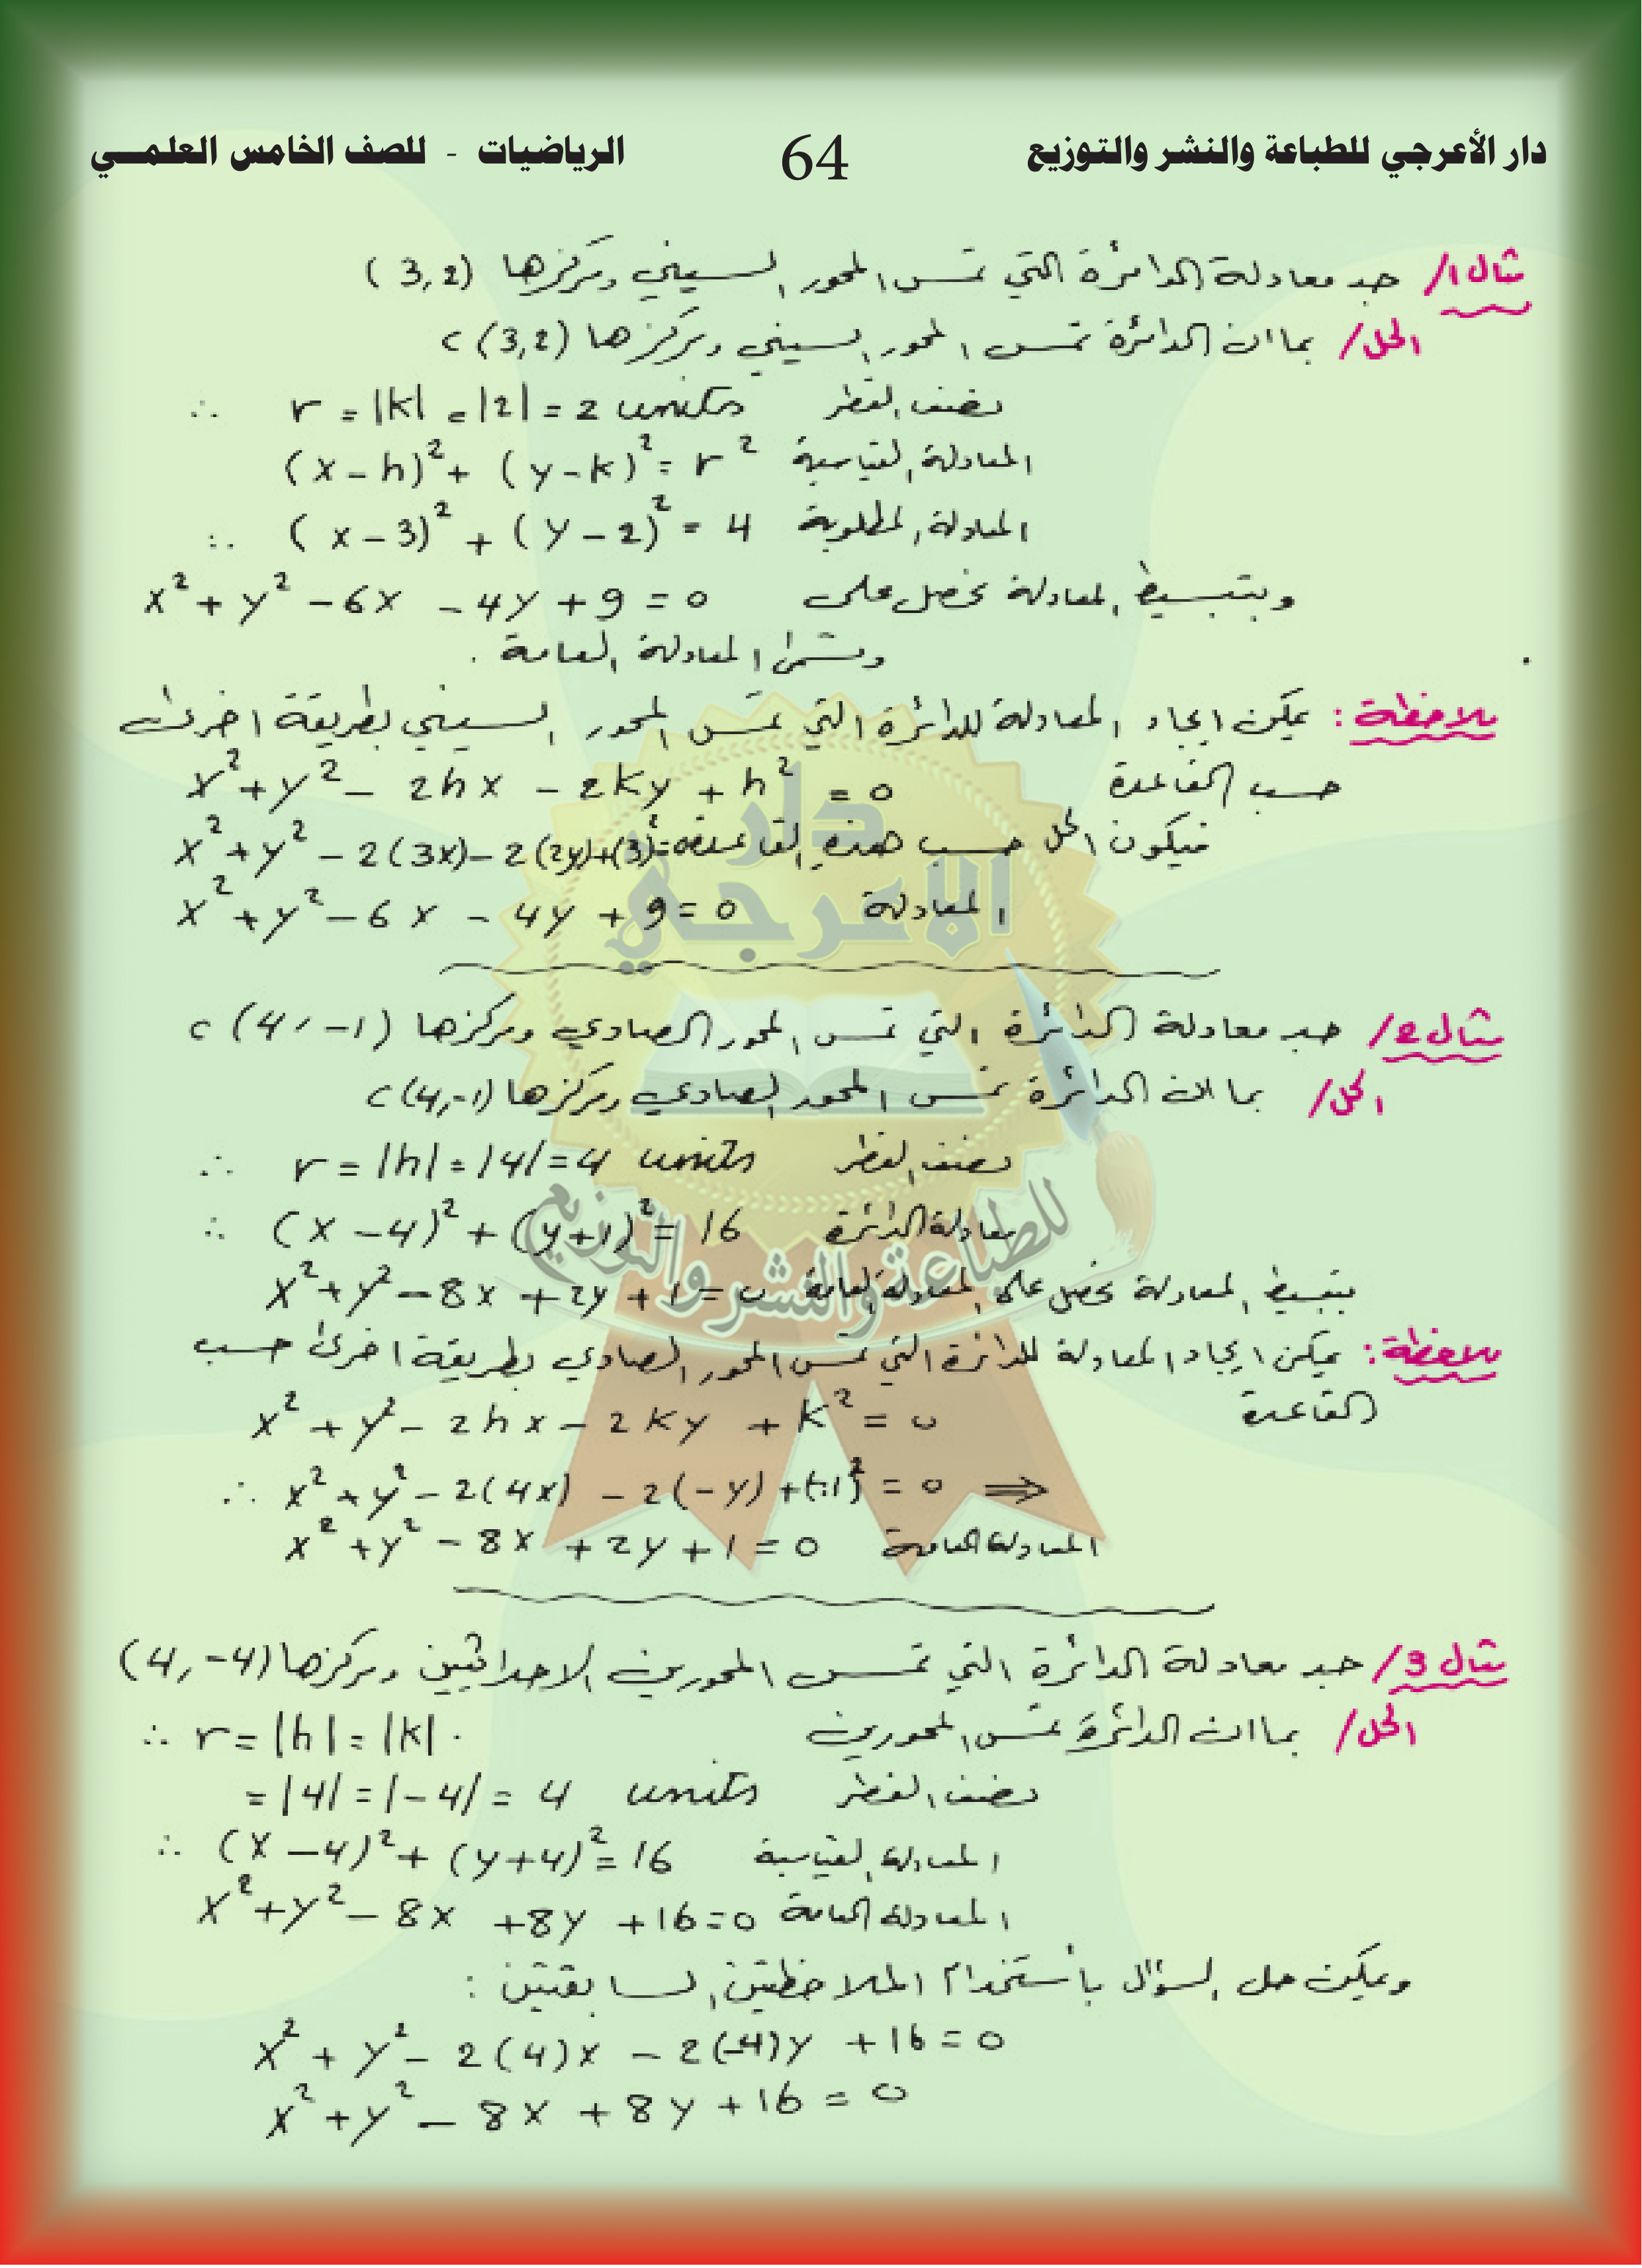 دار الأعرجي للطباعة والنشر والتوزيع 64 الرياضيات - للصف الخامس العلمـــي
مثال 1/ جد معادلة الدائرة التي تمس المحور السيني ومركزها (3,2)
الحل/ بما ان الدائرة تمس المحور السيني ومركزها c(3,2)
∴ r = |k| = |2| = 2 units نصف القطر
(x-h)² + (y-k)² = r² المعادلة القياسية
∴ (x-3)² + (y-2)² = 4 المعادلة المطلوبة
وبتبسيط المعادلة نحصل على x² + y² - 6x - 4y + 9 = 0
وتسمى المعادلة العامة .
ملاحظة : يمكن ايجاد المعادلة للدائرة التي تمس المحور السيني بطريقة اخرى
حسب القاعدة x² + y² - 2hx - 2ky + h² = 0
فيكون الحل حسب هذه القاعدة x² + y² - 2(3x) - 2(2y) + (3)² =
المعادلة x² + y² - 6x - 4y + 9 = 0
مثال 2/ جد معادلة الدائرة التي تمس المحور الصادي ومركزها c(4,-1)
الحل/ بما ان الدائرة تمس المحور الصادي ومركزها c(4,-1)
∴ r = |h| = |4| = 4 units نصف القطر
∴ (x-4)² + (y+1)² = 16 معادلة الدائرة
بتبسيط المعادلة نحصل على المعادلة العامة x² + y² - 8x + 2y + 1 = 0
ملاحظة : يمكن ايجاد المعادلة للدائرة التي تمس المحور الصادي بطريقة اخرى حسب
القاعدة x² + y² - 2hx - 2ky + k² = 0
∴ x² + y² - 2(4x) - 2(-y) + (-1)² = 0 ⇒
x² + y² - 8x + 2y + 1 = 0 المعادلة العامة
مثال 3/ جد معادلة الدائرة التي تمس المحورين الاحداثيين ومركزها (4,-4)
الحل/ بما ان الدائرة تمس المحورين ∴ r = |h| = |k| .
= |4| = |-4| = 4 units نصف القطر
∴ (x-4)² + (y+4)² = 16 المعادلة القياسية
x² + y² - 8x + 8y + 16 = 0 المعادلة العامة
ويمكن حل السؤال بأستخدام الملاحظتين السابقتين :
x² + y² - 2(4)x - 2(-4)y + 16 = 0
x² + y² - 8x + 8y + 16 = 0
دار
الاعرجي
للطباعة والنشر والتوزيع